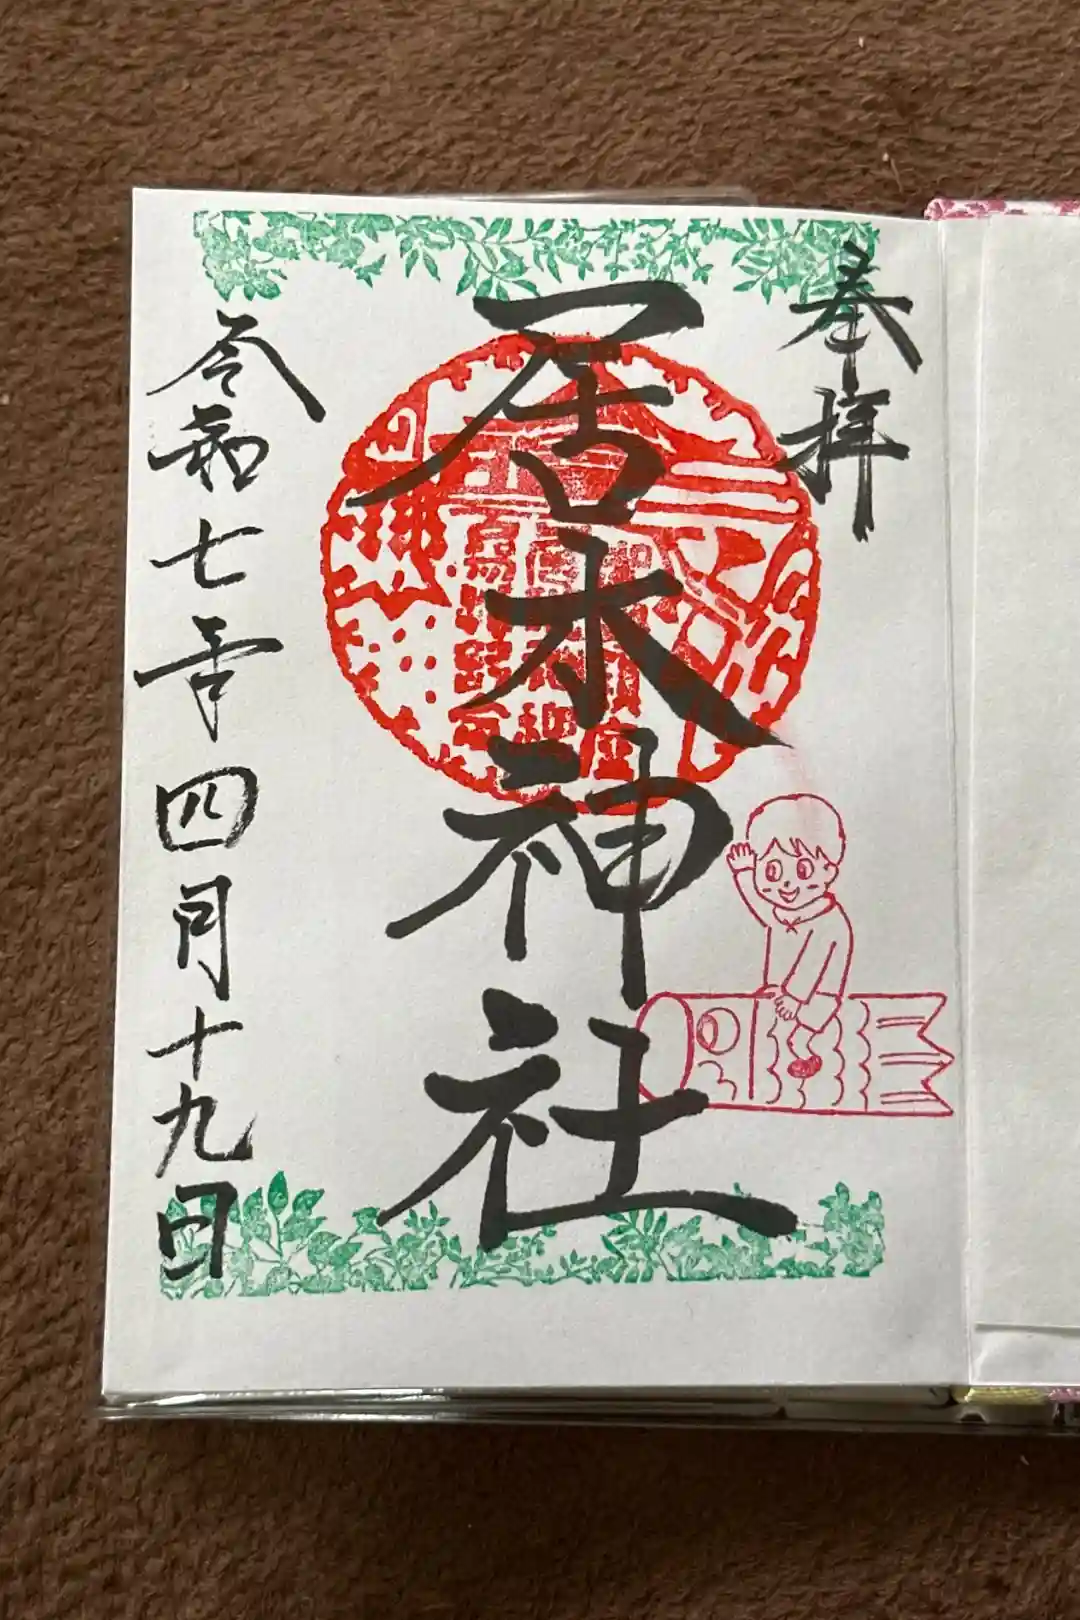 奉拝
居木神社
令和七年四月十九日